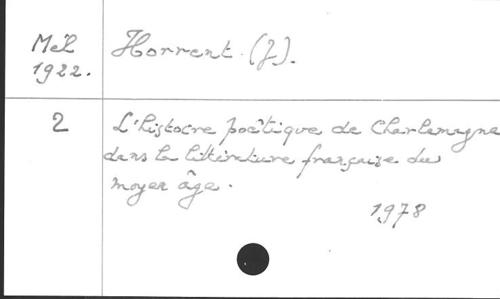 Mél Horrent (J).
1922.
2 L'histoire poétique de Charlemagne
dans la littérature française du
moyen âge.
1978